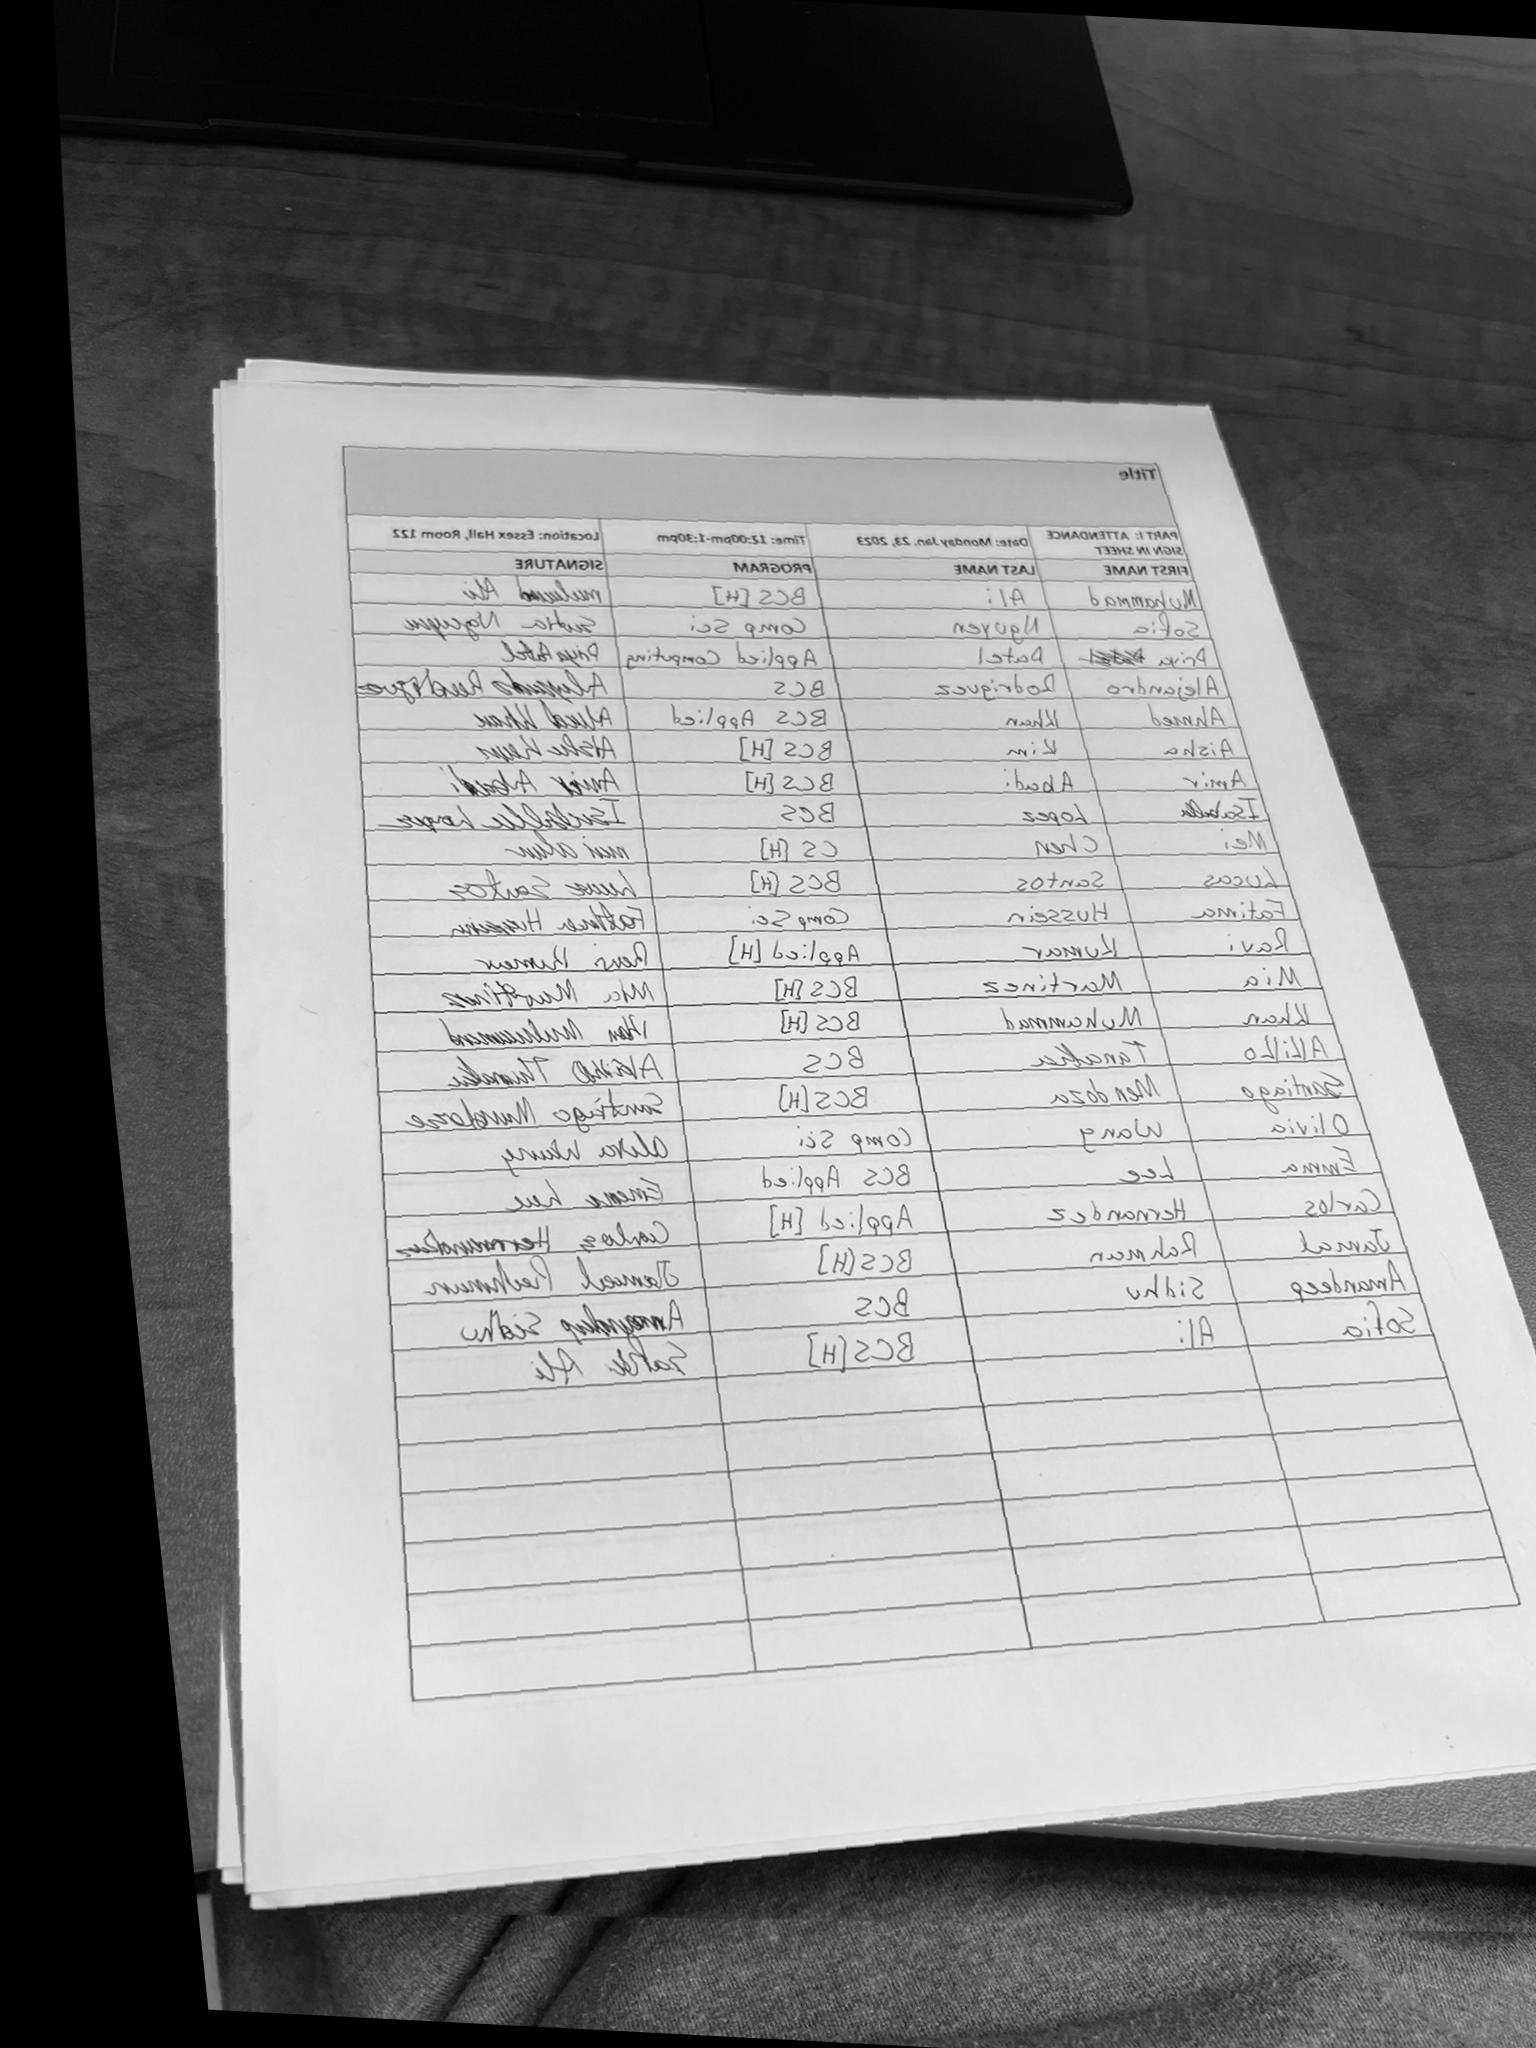 Title
PART I: ATTENDANCE SIGN IN SHEET Date: Monday Jan. 23, 2023 Time: 12:00pm-1:30pm Location: Essex Hall, Room 122
FIRST NAME LAST NAME PROGRAM SIGNATURE
Muhammad Ali BCS [H] Ali
Sofia Nguyen Comp Sci Sofia Nguyen
Priya Patel Applied Computing Priya Patel
Alejandro Rodriguez BCS Alejandro Rodriguez
Ahmed Khan BCS Applied Ahmed Khan
Aisha Kim BCS [H] Aisha
Amir Abadi BCS [H] Amir Abadi
Isabella Lopez BCS Isabella Lopez
Mei Chen CS [H]
Lucas Santos BCS [H] Lucas Santos
Fatima Hussein Comp Sci Fatima Hussein
Ravi Kumar Applied [H] Ravi Kumar
Mia Martinez BCS [H] Mia Martinez
Khan Muhammad BCS [H] Khan Muhammad
Tanaka BCS
Santiago Mendoza BCS [H] Santiago Mendoza
Olivia Wang Comp Sci Olivia Wang
Emma Lee BCS Applied Emma Lee
Carlos Hernandez Applied [H] Carlos Hernandez
Jamal Rahman BCS [H] Jamal Rahman
Amandeep Sidhu BCS Amandeep Sidhu
Sofia Ali BCS [H] Ali